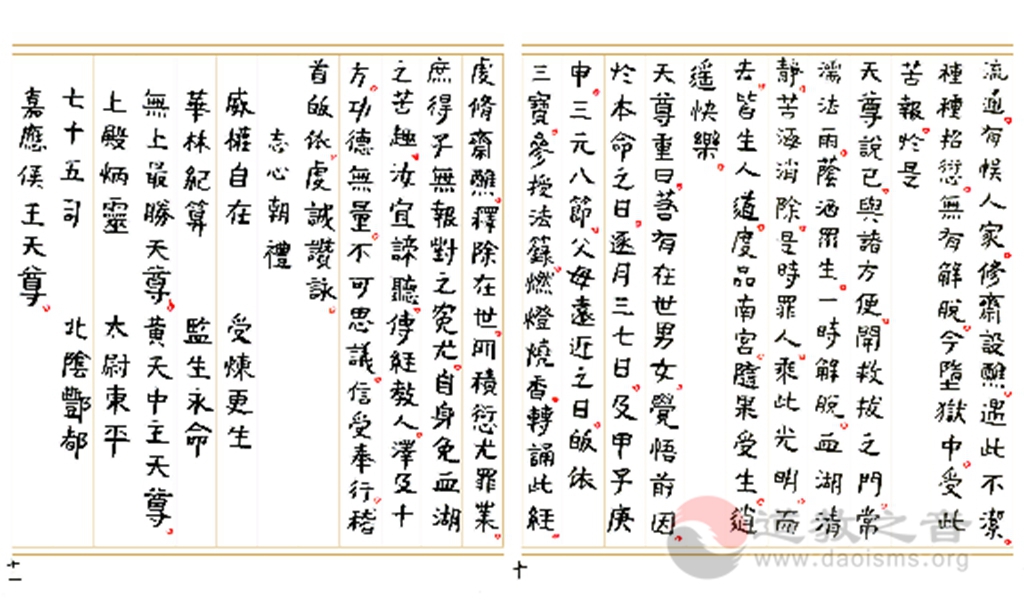 流通有悮人家修齋設醮遇此不潔
種種招愆無有解脫今墮獄中受此
苦報扵是
天尊說已與諸方便開救拔之門常
濡法雨蔭洒眾生一時解脫血湖清
靜苦消除是時罪人乘此光明而
去皆生人道度品南宮隨果受生逍
遥快樂
天尊重曰若有在世男女覺悟前因
扵本命之日逐月三七日及甲子庚
申三元八節父母遠近之日皈依
三寶參授法籙燃燈燒香轉誦此經
十
虔脩齋醮釋除在世所積愆尤罪業
庶得子無報對之冤尤自身免血湖
之苦趣汝宜諦聽傳經教人澤及十
方功德無量不可思議信受奉行稽
首皈依虔誠讚詠
志心朝禮
威權自在 受煉更生
華林紀算 監生永命
無上最勝天尊 黃天中主天尊
上殿炳靈 太尉東平
七十五司 北陰酆都
嘉應侯王天尊
十一
道教之音
www.daoisms.org